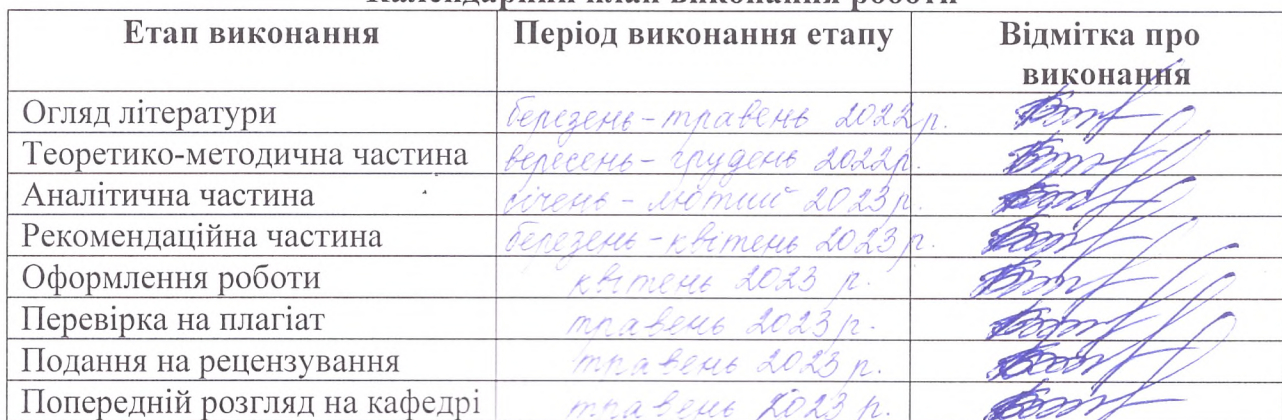 Календарний план виконання роботи
Етап виконання Період виконання етапу Відмітка про
виконання
Огляд літератури березень-травень 2022р.
Теоретико-методична частина вересень-грудень 2022р.
Аналітична частина січень-лютий 2023р.
Рекомендаційна частина березень-квітень 2023р.
Оформлення роботи квітень 2023 р.
Перевірка на плагіат травень 2023р.
Подання на рецензування травень 2023 р.
Попередній розгляд на кафедрі травень 2023 р.